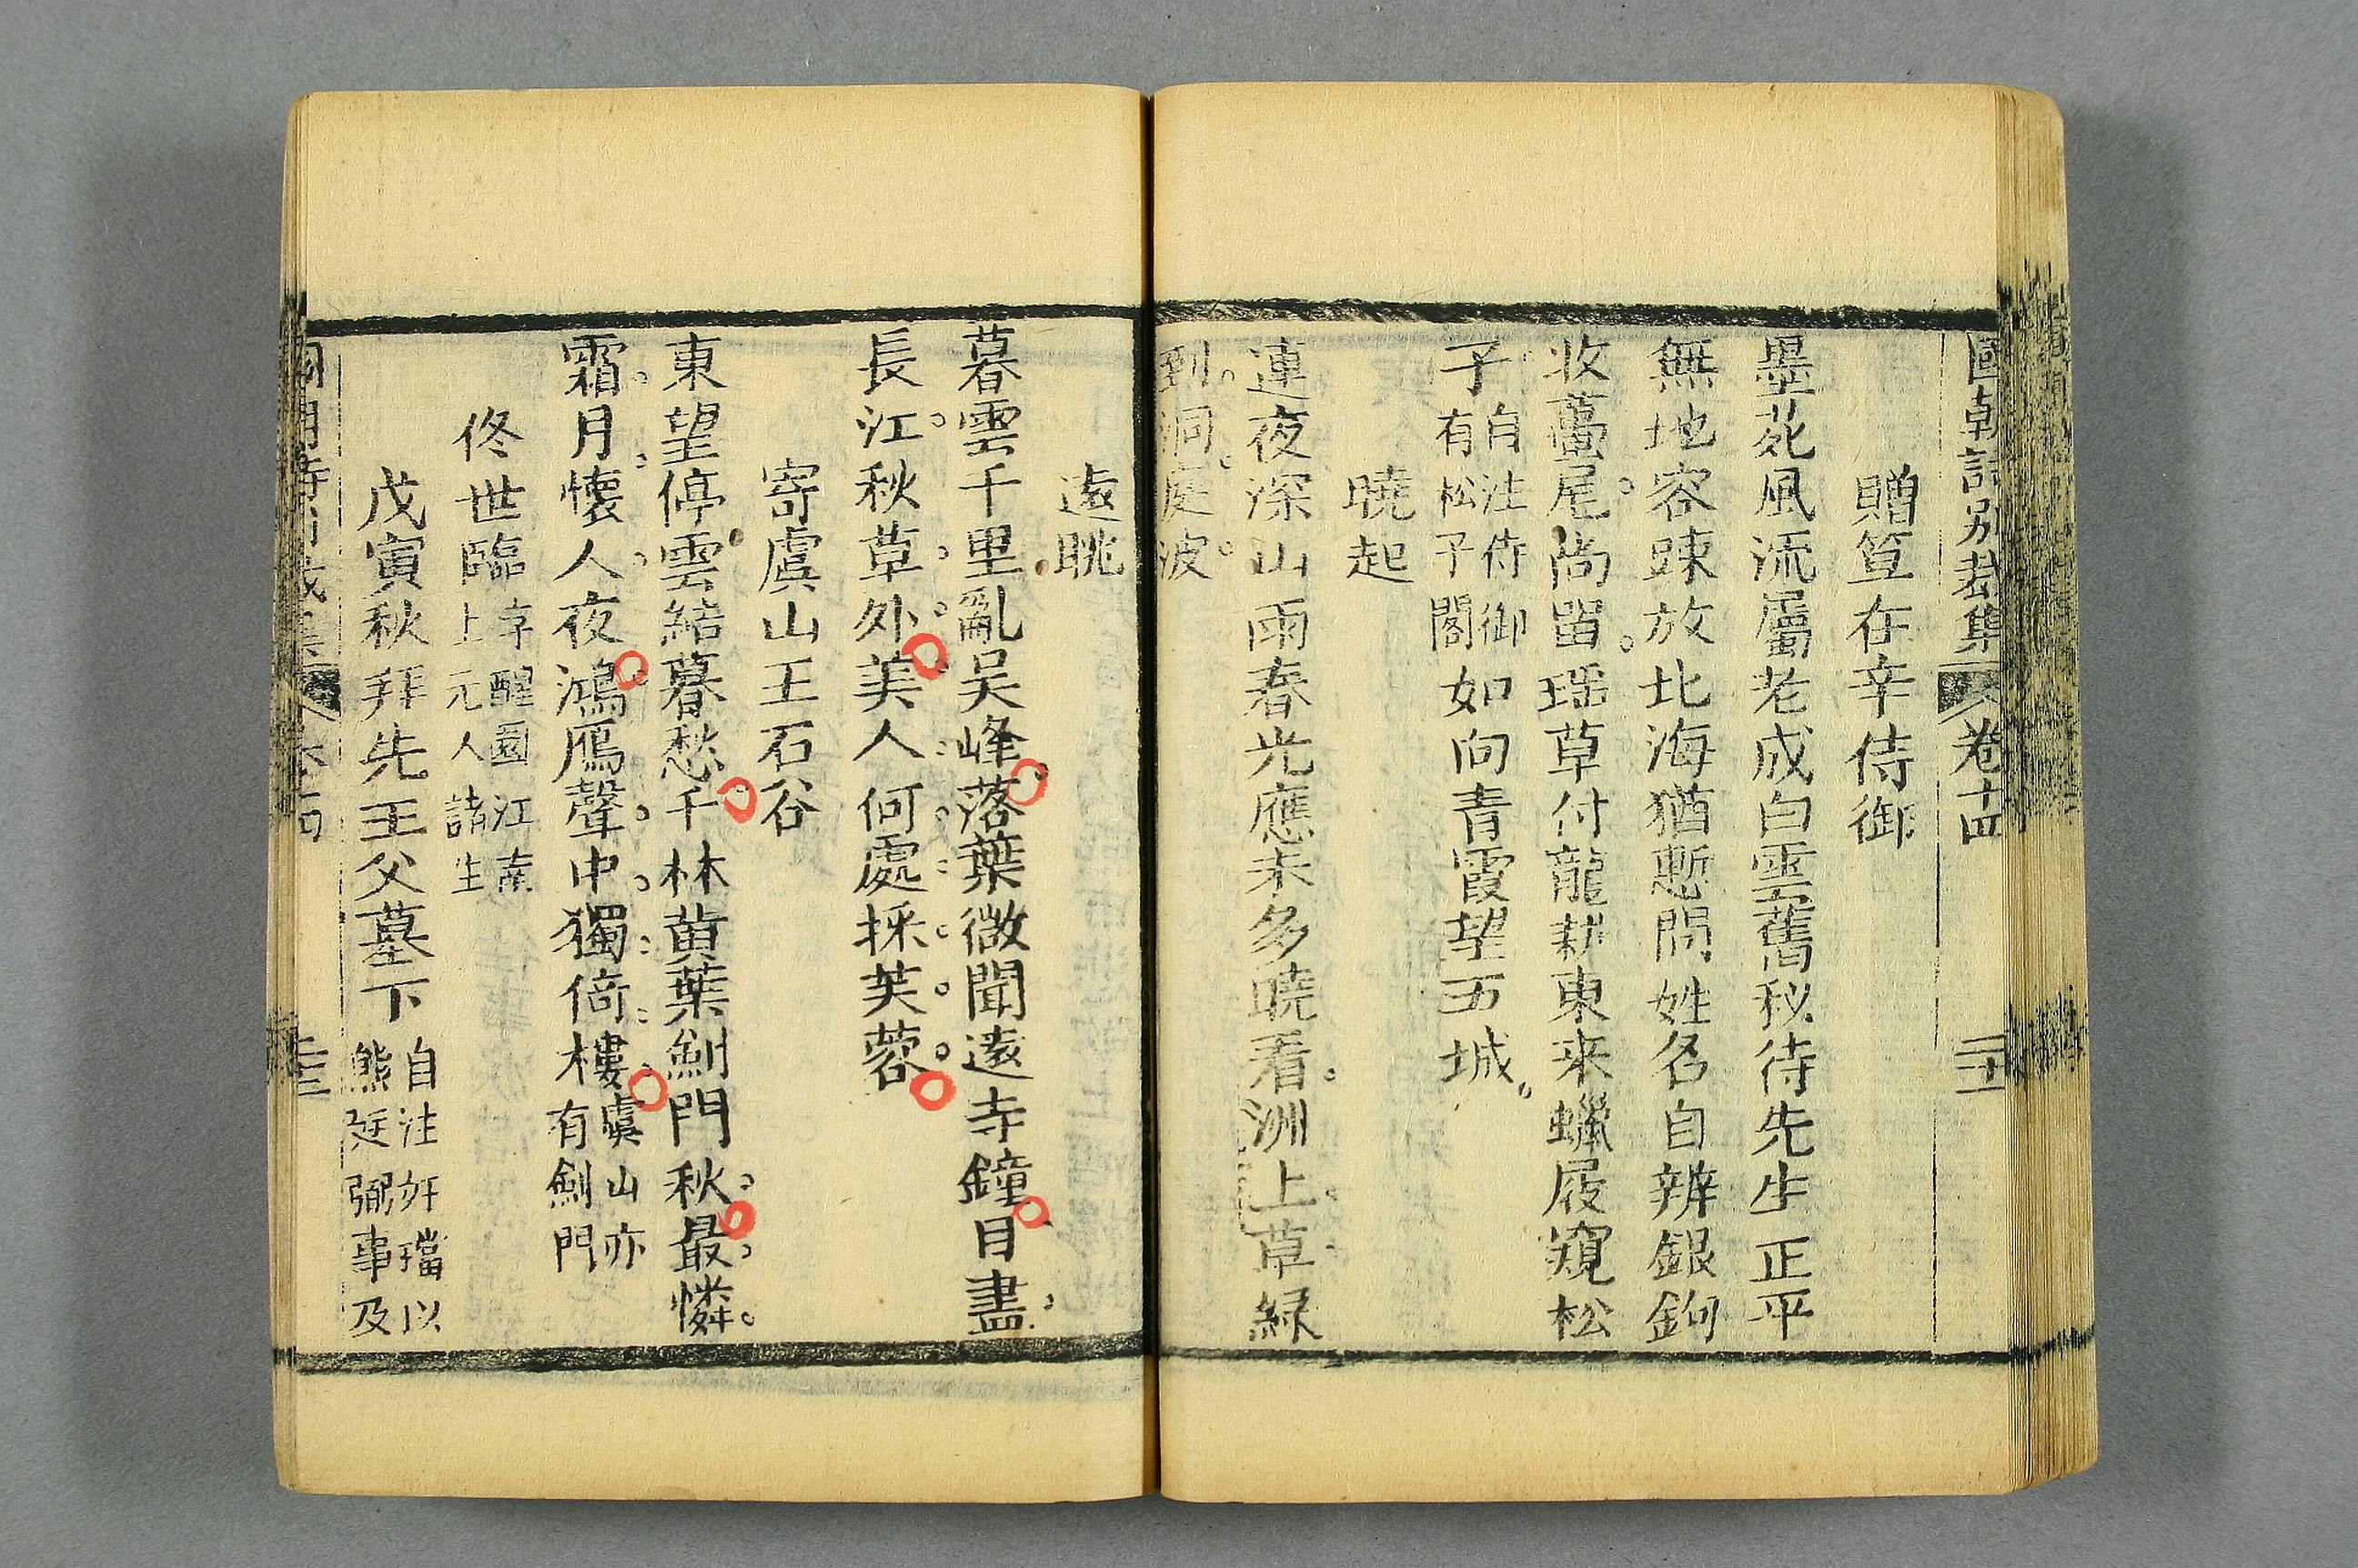 國朝詩別裁集 卷十四
贈笪在辛侍御
墨苑風流屬老成白雲舊秘待先生正平
無地容踈放北海猶慙問姓名自辨銀鉤
收蠆尾尚留瑶草付龍耕東来蠟屐窺松
子自注侍御有松子閣如向青霞望五城
曉起
連夜深山雨春光應未多曉看洲上草緑
到洞庭波
遠眺
暮雲千里亂吴峰落葉微聞遠寺鐘目盡
長江秋草外美人何處採芙蓉
寄虞山王石谷
東望停雲結暮愁千林黄葉劍門秋最憐
霜月懷人夜鴻鴈聲中獨倚樓虞山亦有劍門
佟世臨字醒園江南上元人諸生
戊寅秋拜先王父墓下自注奸璫以熊廷弼事及